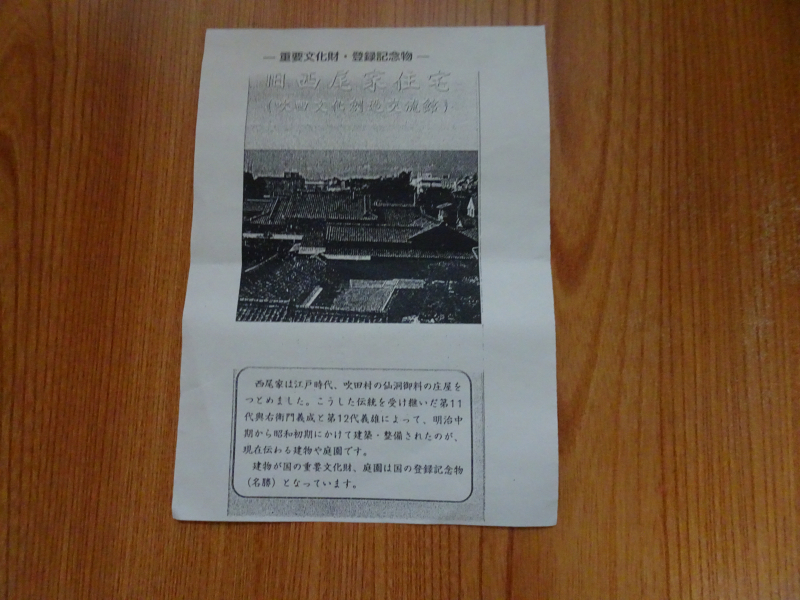 ― 重要文化財・登録記念物 ―
旧西尾家住宅
(吹田文化創造交流館)
西尾家は江戸時代、吹田村の仙洞御料の庄屋を
つとめました。こうした伝統を受け継いだ第11
代與右衛門義成と第12代義雄によって、明治中
期から昭和初期にかけて建築・整備されたのが、
現在伝わる建物や庭園です。
建物が国の重要文化財、庭園は国の登録記念物
(名勝)となっています。